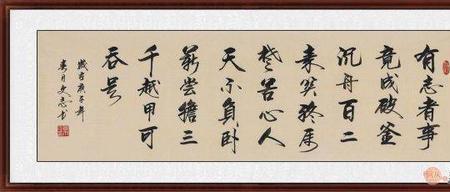 有志者事
竟成破釜
沉舟百二
秦关终属
楚苦心人
天不負卧
薪嘗膽三
千越甲可
吞吴
歲在庚子年
春月文志书